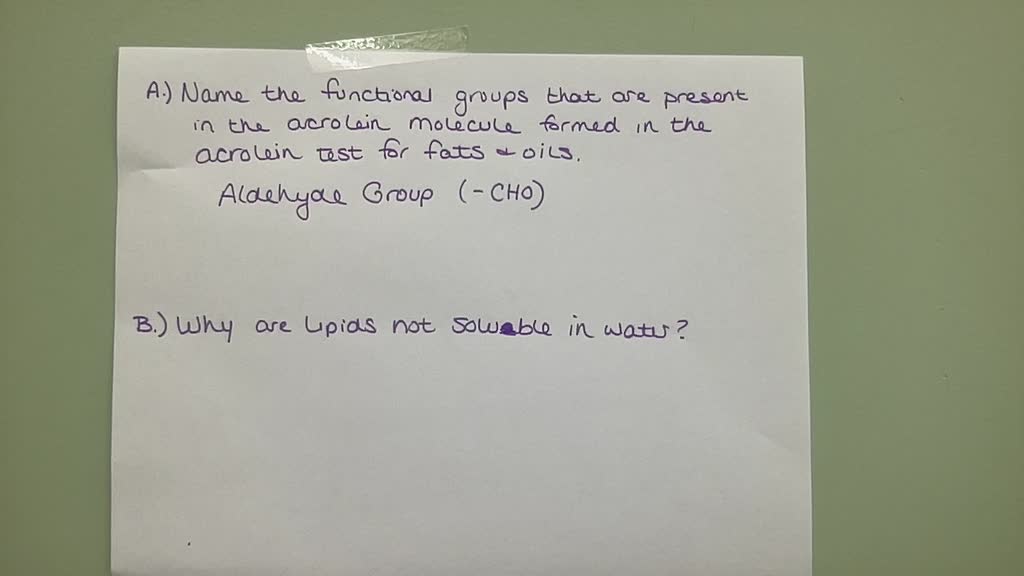 A.) Name the functional groups that are present
in the acrolein molecule formed in the
acrolein test for fats & oils.
Aldehyde Group (-CHO)
B.) Why are lipids not soluable in water?